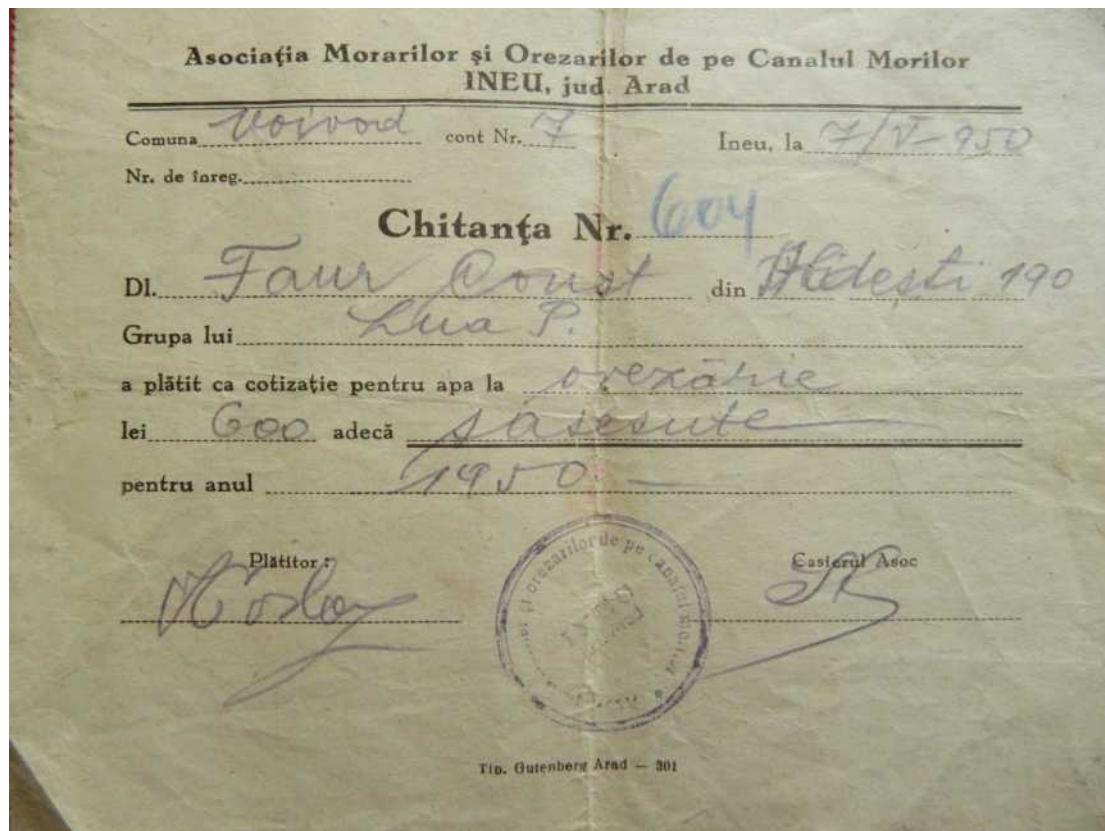 Asociația Morarilor și Orezarilor de pe Canalul Morilor
INEU, jud. Arad
Comuna Voivod cont Nr. 7 Ineu, la 7/V-950
Nr. de înreg.
Chitanța Nr. 604
Dl. Faur Const din 190
Grupa lui P.
a plătit ca cotizație pentru apa la orezărie
lei 600 adecă sasesute
pentru anul 1950.—
Plătitor: Casierul Asoc
și orezarilor de pe canalul Morilor
Tip. Gutenberg Arad — 301